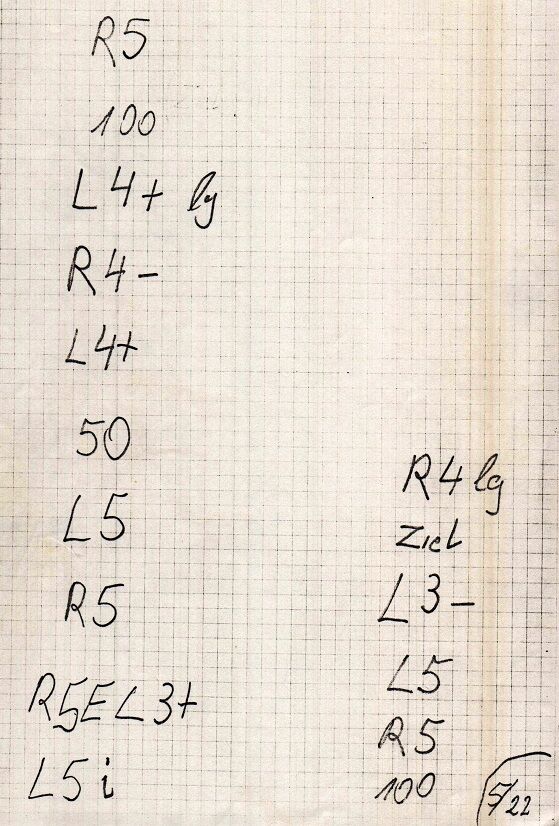 R5
100
L4+ lg
R4-
L4+
50
L5
R5
R5EL3+
L5i
R4 lg
Ziel
L3-
L5
R5
100
5/22